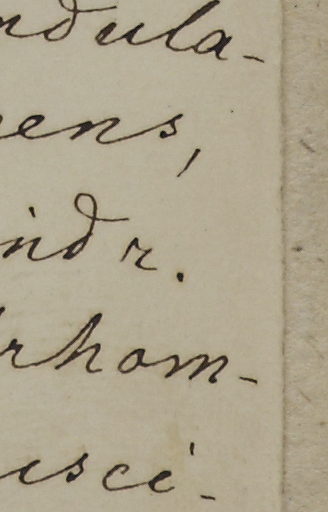 ndula-
ens,
indr.
rhom-
isci-